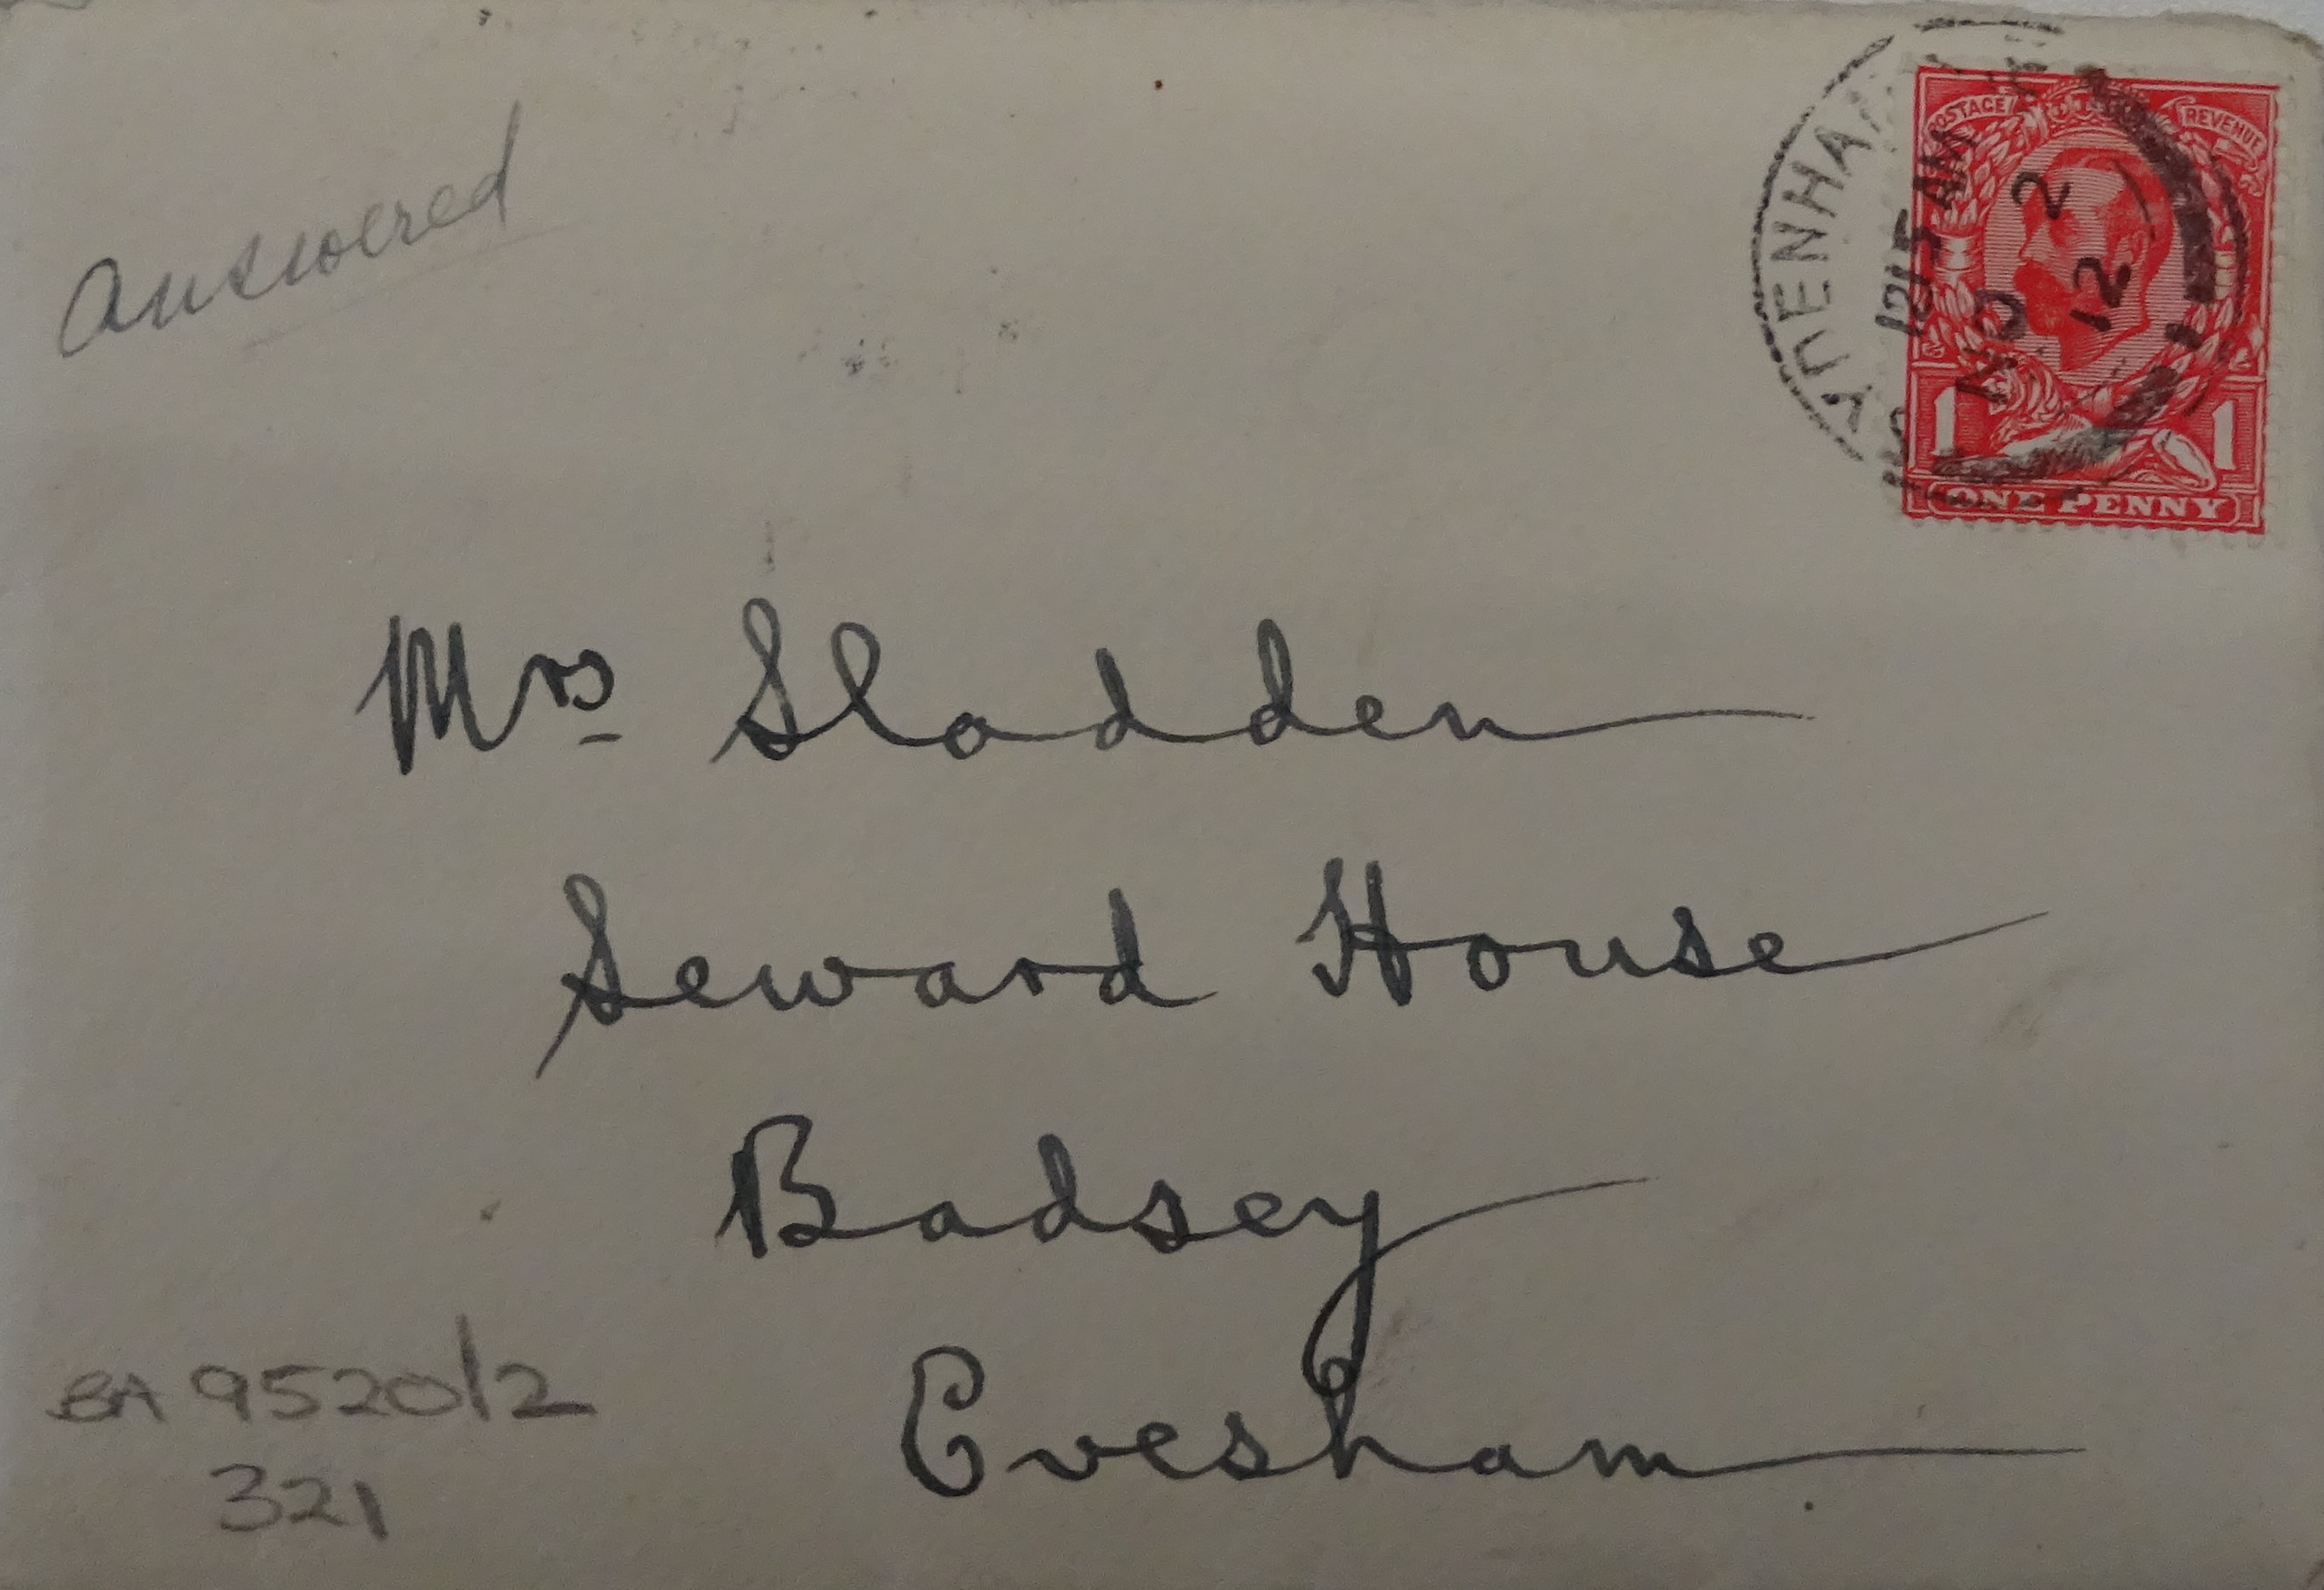 answered
POSTAGE REVENUE
YDENHAM
12 15 AM
NO 2
12
1 1
ONE PENNY
Mrs Sladden
Seward House
Badsey
Evesham
BA 9520/2
321